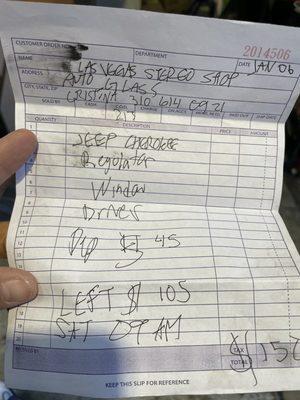 2014506
CUSTOMER ORDER NO.
DEPARTMENT
DATE JAN 06
NAME LAS VEGAS STEREO SHOP
ADDRESS AUTO GLASS
CITY, STATE, ZIP CRISTINA 310 614 0921
SOLD BY CASH C.O.D. CHARGE ON ACCT. MDSE. RETD. PAID OUT
213
QUANTITY DESCRIPTION PRICE AMOUNT
JEEP CHEROKEE
Regulator
Window
Driver
$ 45
LEFT $ 105
SAT 09 AM
RECEIVED BY
TAX
TOTAL $ 150
KEEP THIS SLIP FOR REFERENCE